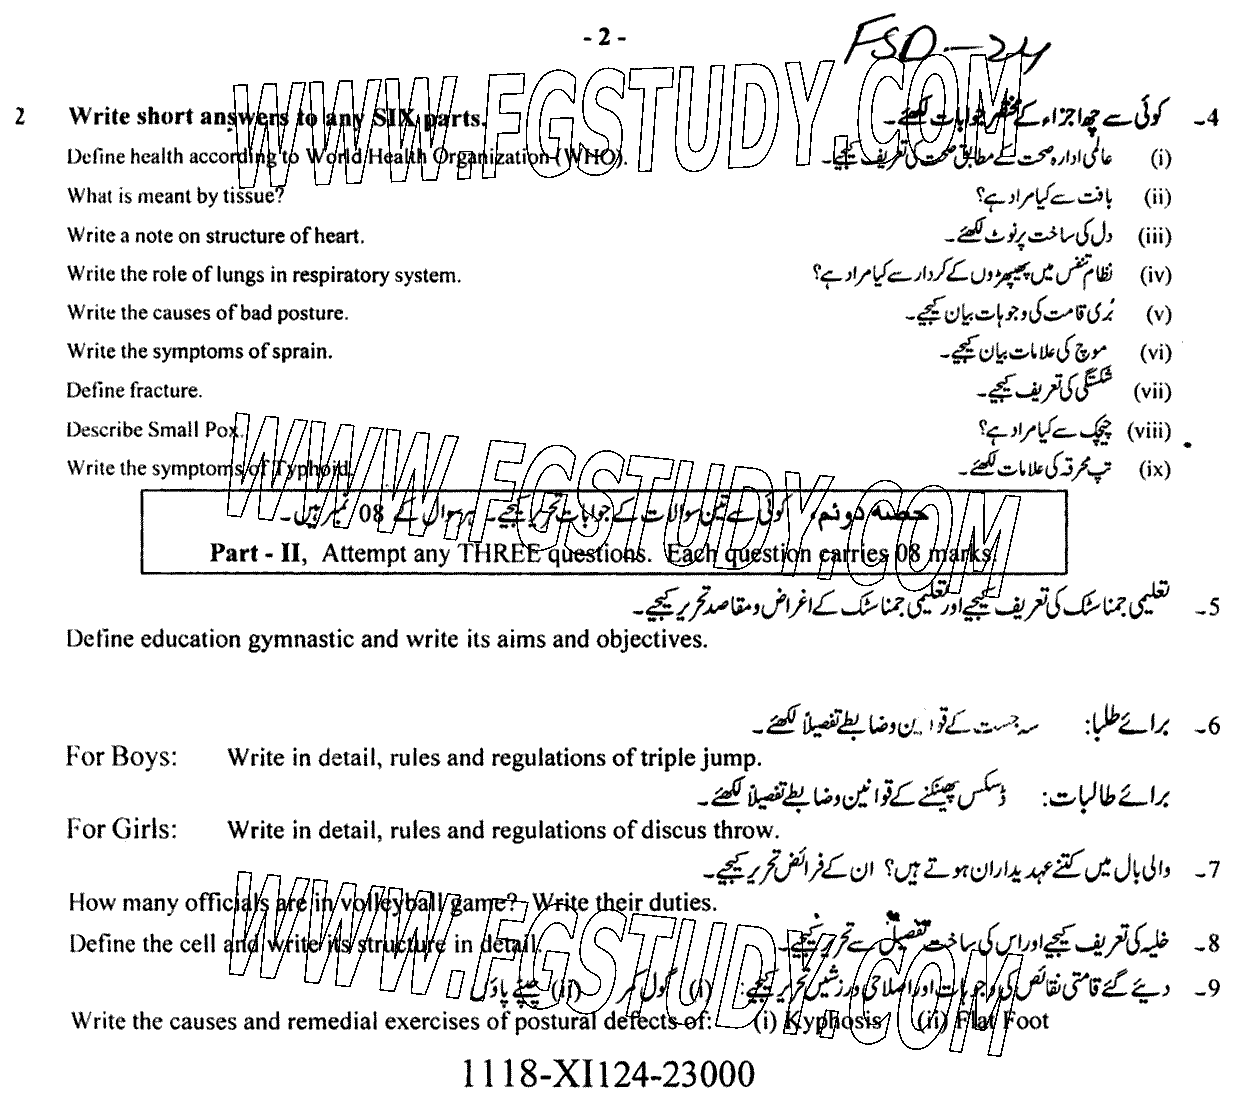 - 2 -
FSD-24
2 Write short answers to any SIX parts. کوئی سے چھ اجزاء کے مختصر جوابات لکھئے۔ 4۔
Define health according to World Health Organization (WHO). عالمی ادارہ صحت کے مطابق صحت کی تعریف کیجیے۔ (i)
What is meant by tissue? بافت سے کیا مراد ہے؟ (ii)
Write a note on structure of heart. دل کی ساخت پر نوٹ لکھئے۔ (iii)
Write the role of lungs in respiratory system. نظام تنفس میں پھیپھڑوں کے کردار سے کیا مراد ہے؟ (iv)
Write the causes of bad posture. بُری قامت کی وجوہات بیان کیجیے۔ (v)
Write the symptoms of sprain. موچ کی علامات بیان کیجیے۔ (vi)
Define fracture. شکستگی کی تعریف کیجیے۔ (vii)
Describe Small Pox. چیچک سے کیا مراد ہے؟ (viii)
Write the symptoms of Typhoid. تپ محرقہ کی علامات لکھئے۔ (ix)
حصہ دوئم، کوئی سے تین سوالات کے جوابات تحریر کیجیے۔ ہر سوال کے 08 نمبر ہیں۔
Part - II, Attempt any THREE questions. Each question carries 08 marks.
تعلیمی جمناسٹک کی تعریف کیجیے اور تعلیمی جمناسٹک کے اغراض و مقاصد تحریر کیجیے۔ 5۔
Define education gymnastic and write its aims and objectives.
برائے طلبا: سہ جست کے قوانین و ضابطے تفصیلاً لکھئے۔ 6۔
For Boys: Write in detail, rules and regulations of triple jump.
برائے طالبات: ڈسکس پھینکنے کے قوانین و ضابطے تفصیلاً لکھئے۔
For Girls: Write in detail, rules and regulations of discus throw.
والی بال میں کتنے عہدیداران ہوتے ہیں؟ ان کے فرائض تحریر کیجیے۔ 7۔
How many officials are in volleyball game? Write their duties.
Define the cell and write its structure in detail. خلیہ کی تعریف کیجیے اور اس کی ساخت تفصیل سے تحریر کیجیے۔ 8۔
دیئے گئے قامتی نقائص کی وجوہات اور اصلاحی ورزشیں تحریر کیجیے: (i) گول کمر (ii) چپٹے پاؤں 9۔
Write the causes and remedial exercises of postural defects of: (i) Kyphosis (ii) Flat Foot
1118-XI124-23000
WWW.FGSTUDY.COM
WWW.FGSTUDY.COM
WWW.FGSTUDY.COM